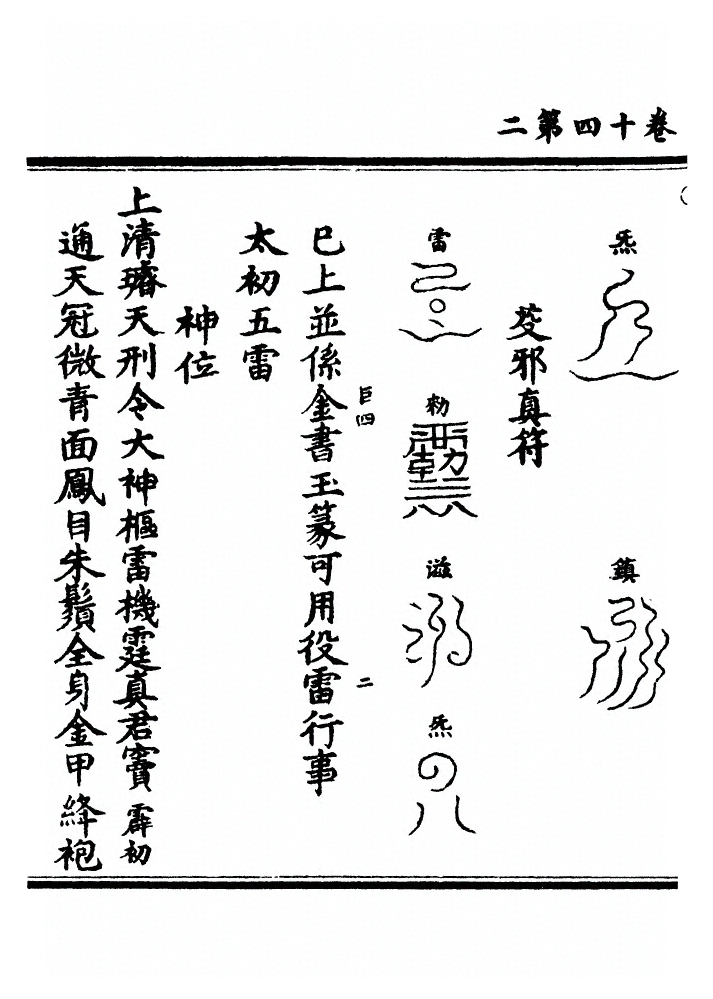 二第四十卷
炁
鎮
茭邪真符
雷
勑
滋
炁
巨四
二
巳上並係金書玉篆可用役雷行事
太初五雷
神位
上清璿天刑令大神樞雷機霆真君竇霹初
通天冠微青面鳳目朱鬚全身金甲絳袍